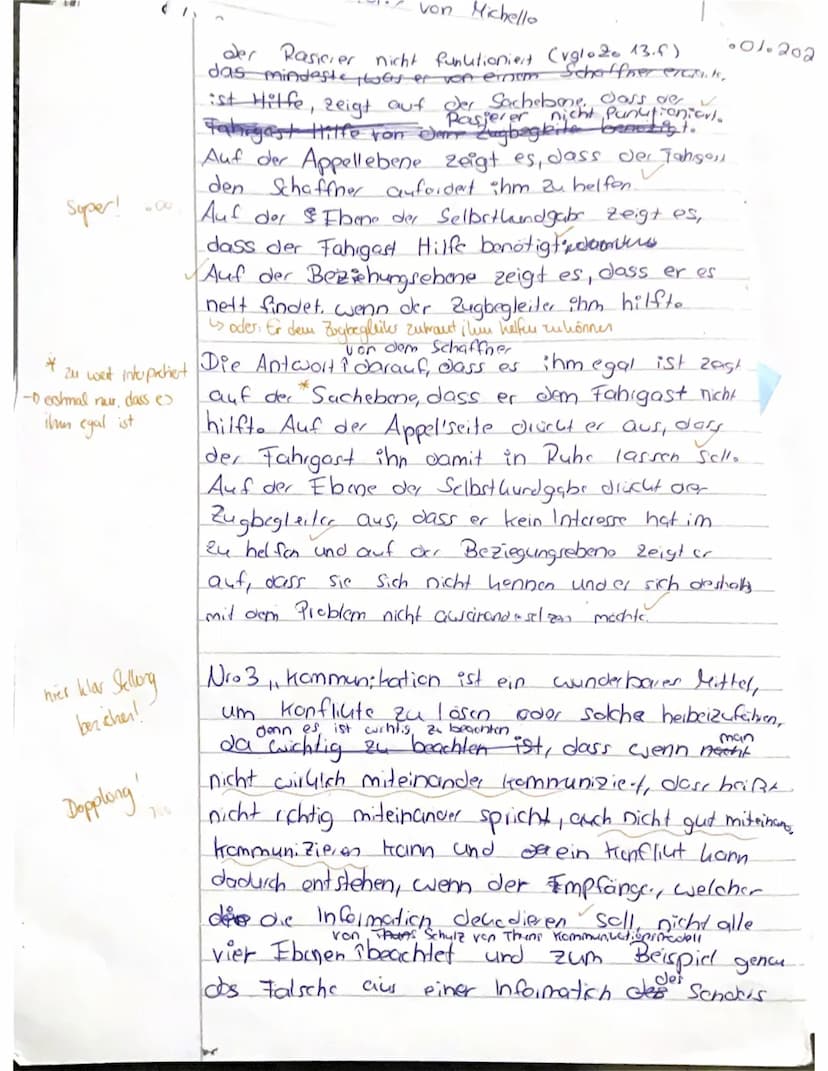 von Michello
der Rasierer nicht funktioniert (vgl. Zo 13.f)
das mindeste, was er von einem Schaffner
ist Hilfe, zeigt auf der Sachebene, dass der
Rasierer nicht funktioniert.
Fahrgast Hilfe von dem Zugbegleiter benötigt.
Auf der Appellebene zeigt es, dass der Fahrgast
den Schaffner aufordert ihm zu helfen.
Super!
Auf der Ebene der Selbstkundgabe zeigt es,
dass der Fahrgast Hilfe benötigt
Auf der Beziehungsebene zeigt es, dass er es
nett findet, wenn der Zugbegleiter ihm hilft.
↳ oder: Er dem Zugbegleiter zutraut ihm helfen zu können
von dem Schaffner
* zu weit interpretiert
→ erstmal nur, dass es
ihm egal ist
Die Antwort darauf, dass es ihm egal ist zeigt
auf der *Sachebene, dass er dem Fahrgast nicht
hilft. Auf der Appelseite drückt er aus, dass
der Fahrgast ihn damit in Ruhe lassen soll.
Auf der Ebene der Selbstkundgabe drückt der
Zugbegleiter aus, dass er kein Interesse hat im
zu helfen und auf der Beziegungsebene zeigt er
auf, dass sie sich nicht kennen und er sich deshalb
mit dem Problem nicht möchte.
hier klar Stellung
beziehen!
Nr.3 „Kommunikation ist ein wunderbares Mittel,
um Konflikte zu lösen oder solche heibeizuführen,
denn es ist wichtig zu beachten
da wichtig zu beachten ist, dass wenn man
Dopplung!
nicht wirklich miteinander kommuniziert, dass heißt
nicht richtig miteinander spricht, auch nicht gut miteinander
kommunizieren kann und ein Konflikt kann
dadurch entstehen, wenn der Empfänger, welcher
die Information dekodieren soll, nicht alle
von Schulz von Thuns Kommunikationsmodell
vier Ebenen beachtet und zum Beispiel genau
das Falsche aus einer Information des Senders